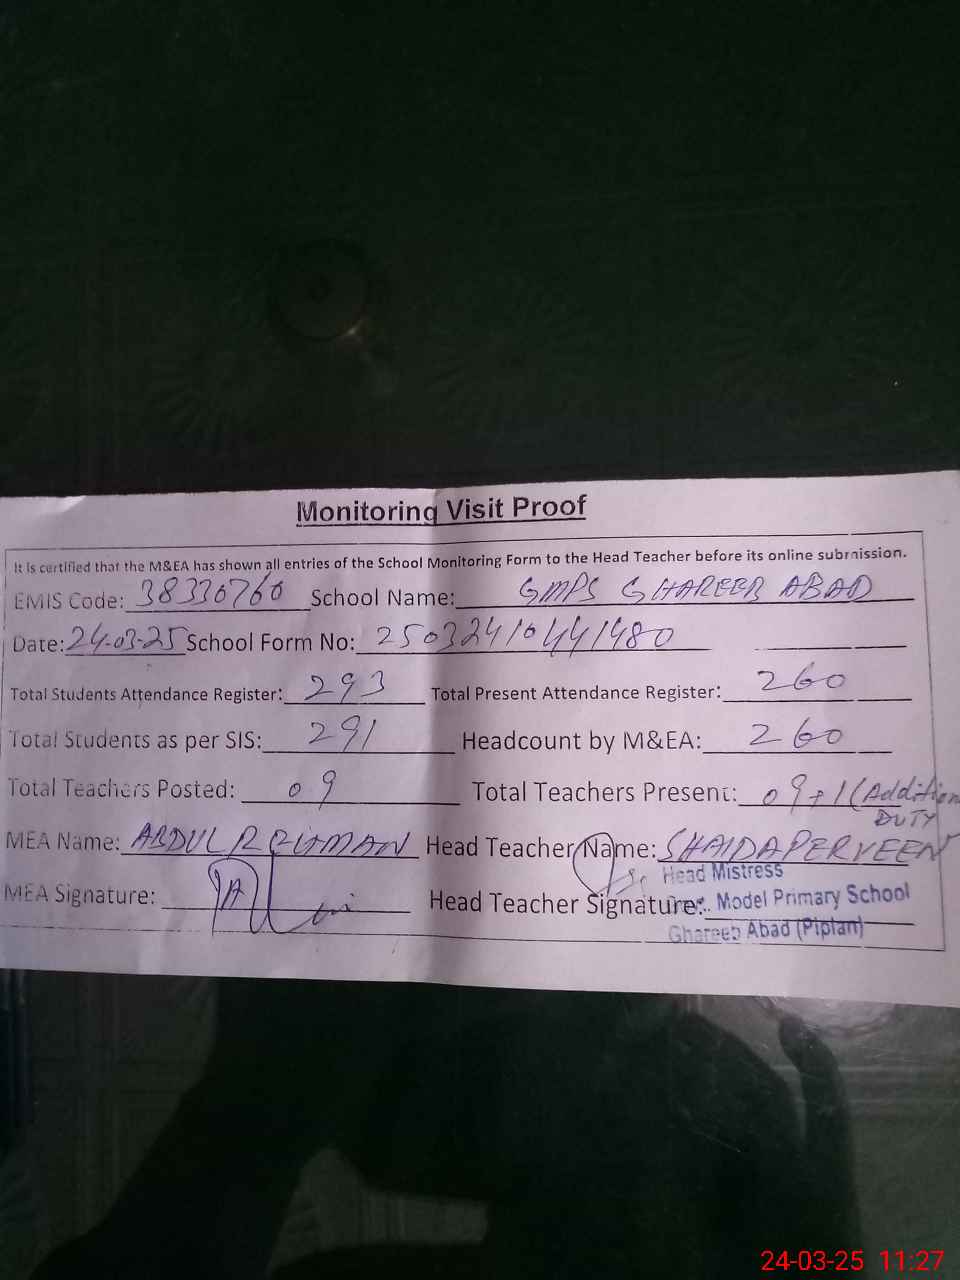 Monitoring Visit Proof
It is certified that the M&EA has shown all entries of the School Monitoring Form to the Head Teacher before its online submission.
EMIS Code: 38330760 School Name: GMPS GHAREEB ABAD
Date: 24-03-25 School Form No: 25032410441480
Total Students Attendance Register: 293 Total Present Attendance Register: 260
Total Students as per SIS: 291 Headcount by M&EA: 260
Total Teachers Posted: 09 Total Teachers Present: 09+1 (Addition
DUTY
MEA Name: ABDUL REHMAN Head Teacher Name: SHAIDA PERVEEN
Head Mistress
MEA Signature: Head Teacher Signature: Model Primary School
Ghareeb Abad (Piplan)
24-03-25 11:27